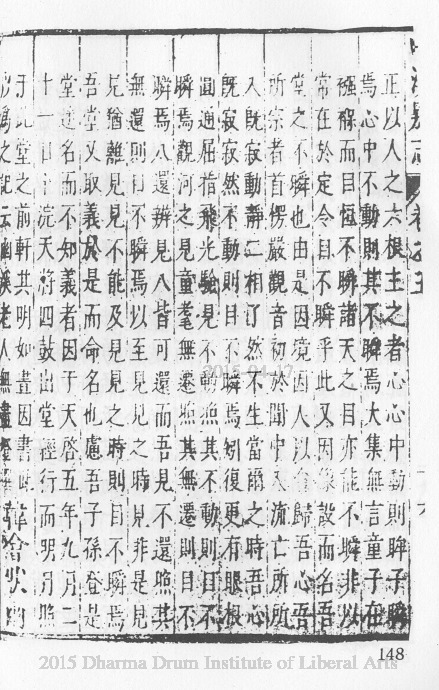 正以人之六根主之者心心中動則眸子瞬
焉心中不動則其不瞬焉大集無言童子在
襁褓而目恆不瞬諸天之目亦能不瞬非以
常在於定令目不瞬乎此又因緣設而名吾
堂之不瞬也由是因境因人以會歸吾心吾
所宗者首楞嚴觀音初於聞中入流亡所所
入既寂動靜二相了然不生當爾之時吾心
既寂寂然不動則目不瞬焉矧復更有眼根
圓通屈指飛光驗見不動照其不動則目不
瞬焉觀河之見童耄無遷照其無遷則目不
瞬焉八還辨見八皆可還而吾見不還照其
無還則目不瞬焉以至見見之時見非是見
見猶離見見不能及見見之時則目不瞬焉
吾堂又取義於是而命名也慮吾子孫登是
堂達名而不知義者因于天啓五年九月二
十一日十浣天將四鼓出堂經行而明月照
于此堂之前軒其明如晝因書
之記云幽溪老人無盡
148
2015 Dharma Drum Institute of Liberal Arts